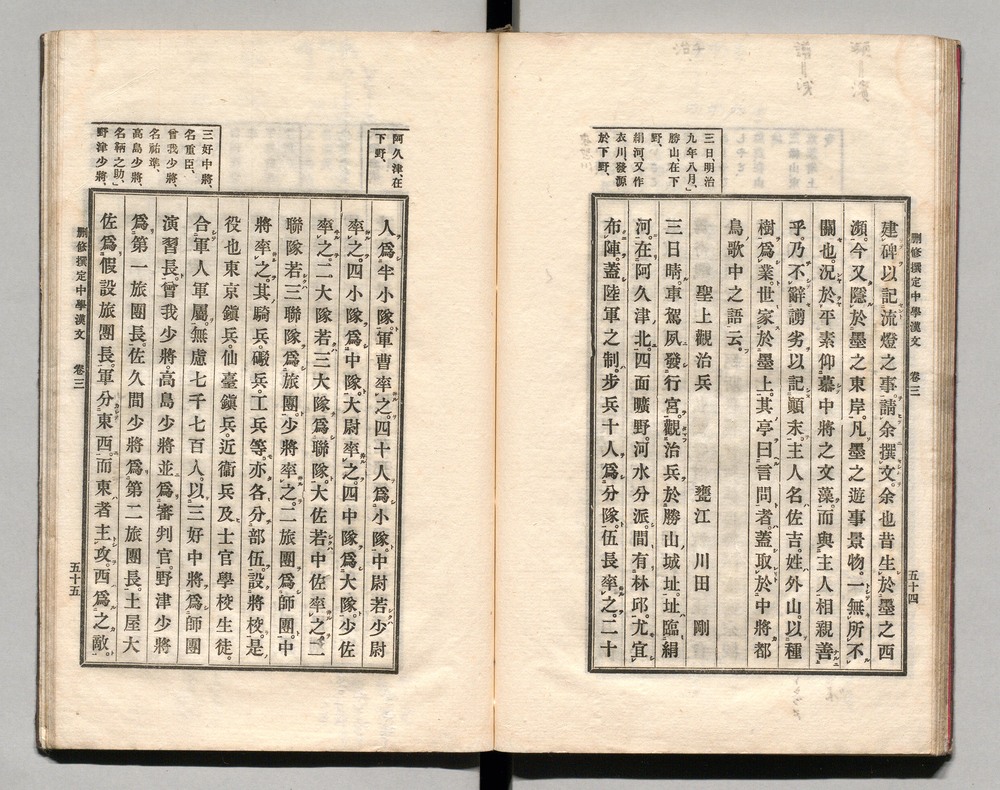 三日、明治
九年八月、
勝山、在下
野、
絹河又作
衣川發源
於下野、
刪修撰定中學漢文 卷三
五十四
建碑以記流燈之事。請余撰文。余也昔生於墨之西
瀕。今又隱於墨之東岸。凡墨之遊事景物。一無所不
關也。況於平素仰慕中將之文藻。而與主人相親善
乎。乃不辭謭劣以記顚末。主人名佐吉。姓外山。以種
樹爲業。世家於墨上。其亭曰言問者。蓋取於中將都
鳥歌中之語云。
聖上觀治兵 甕江 川田 剛
三日晴。車駕夙發行宮。觀治兵於勝山城址。址臨絹
河。在阿久津北。四面曠野。河水分派。間有林邱。尤宜
布陣。蓋陸軍之制。步兵十人爲分隊。伍長率之。二十
阿久津、在
下野、
三好中將、
名重臣、
曾我少將、
名祐準、
高島少將、
名鞆之助、
野津少將、
人爲半小隊。軍曹率之。四十人爲小隊。中尉若少尉
率之。四小隊爲中隊。大尉率之。四中隊爲大隊。少佐
率之。二大隊若三大隊爲聯隊。大佐若中佐率之。二
聯隊若三聯隊爲旅團。少將率之。二旅團爲師團。中
將率之。其騎兵。礮兵。工兵等。亦各分部伍。設將校。是
役也東京鎭兵。仙臺鎭兵。近衞兵及士官學校生徒。
合軍人軍屬。無慮七千七百人。以三好中將爲師團
演習長。曾我少將。高島少將並爲審判官。野津少將
爲第一旅團長。佐久間少將爲第二旅團長。土屋大
佐爲假設旅團長。軍分東西。而東者主攻。西爲之敵。
刪修撰定中學漢文 卷三
五十五